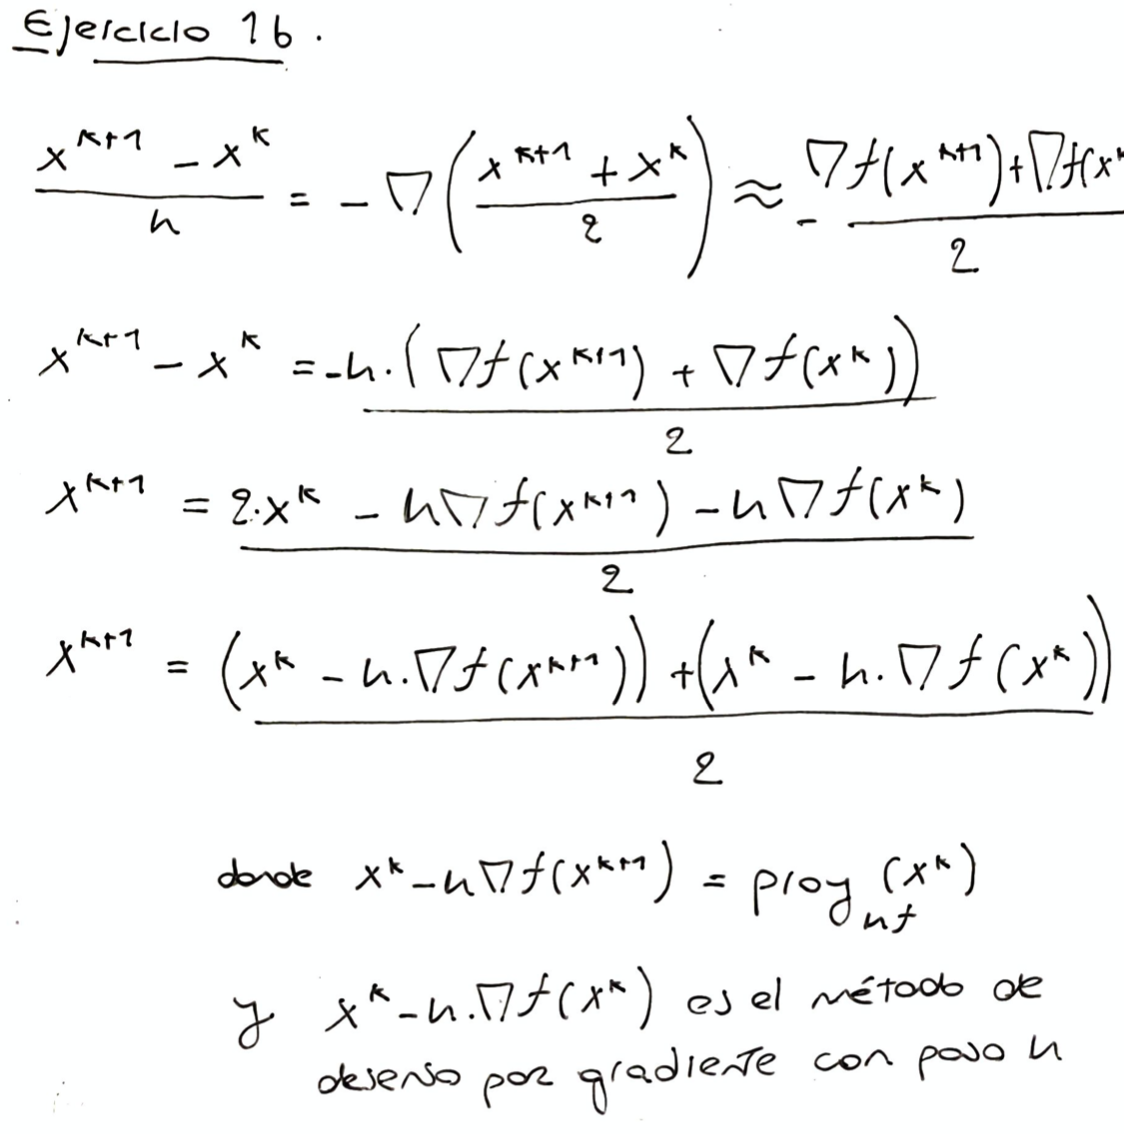 Ejercicio 1b.
(x^{k+1} - x^k)/h = -∇((x^{k+1} + x^k)/2) ≈ -(∇f(x^{k+1}) + ∇f(x^k
x^{k+1} - x^k = -h·(∇f(x^{k+1}) + ∇f(x^k))/2
x^{k+1} = (2·x^k - h∇f(x^{k+1}) - h∇f(x^k))/2
x^{k+1} = ((x^k - h.∇f(x^{k+1})) + (x^k - h.∇f(x^k)))/2
donde x^k - h∇f(x^{k+1}) = proy_{hf}(x^k)
y x^k - h.∇f(x^k) es el método de
desenso por gradiente con paso h